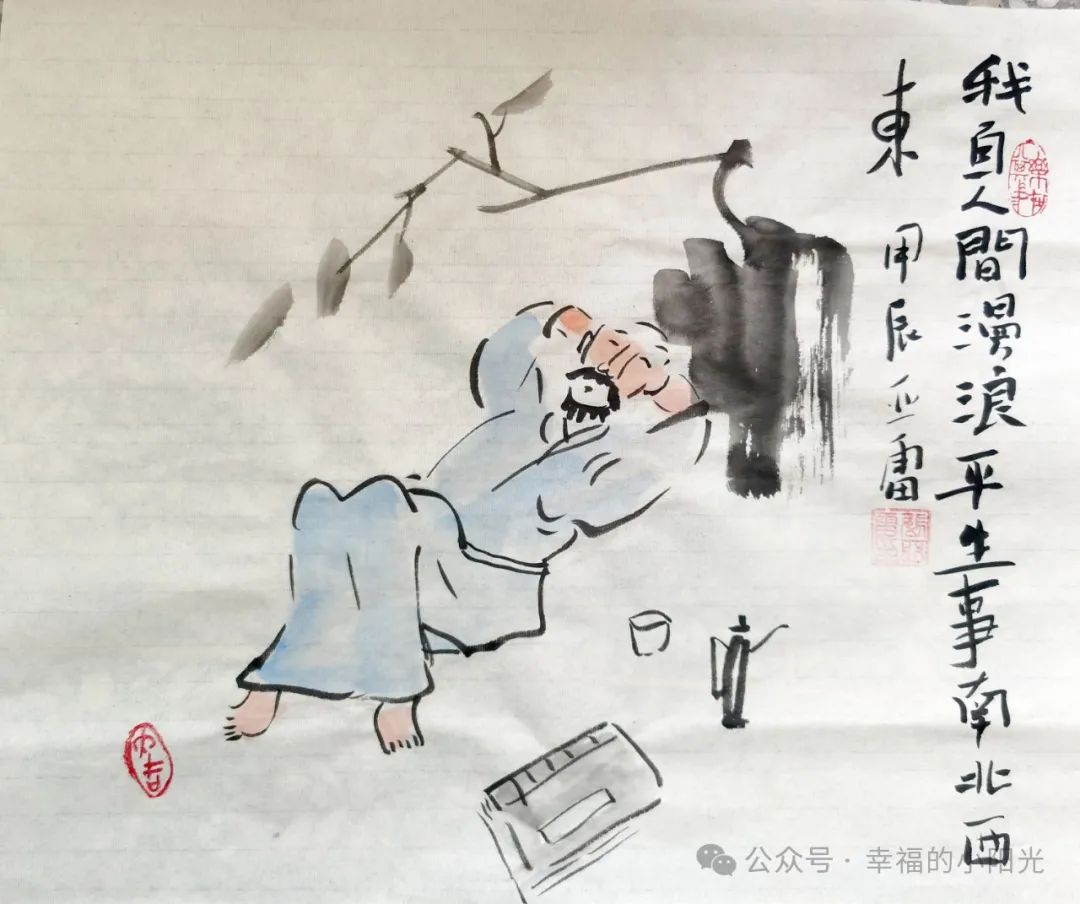 我自人間漫浪平生事南北西
東
甲辰亚雷
大吉
公众号 · 幸福的小阳光